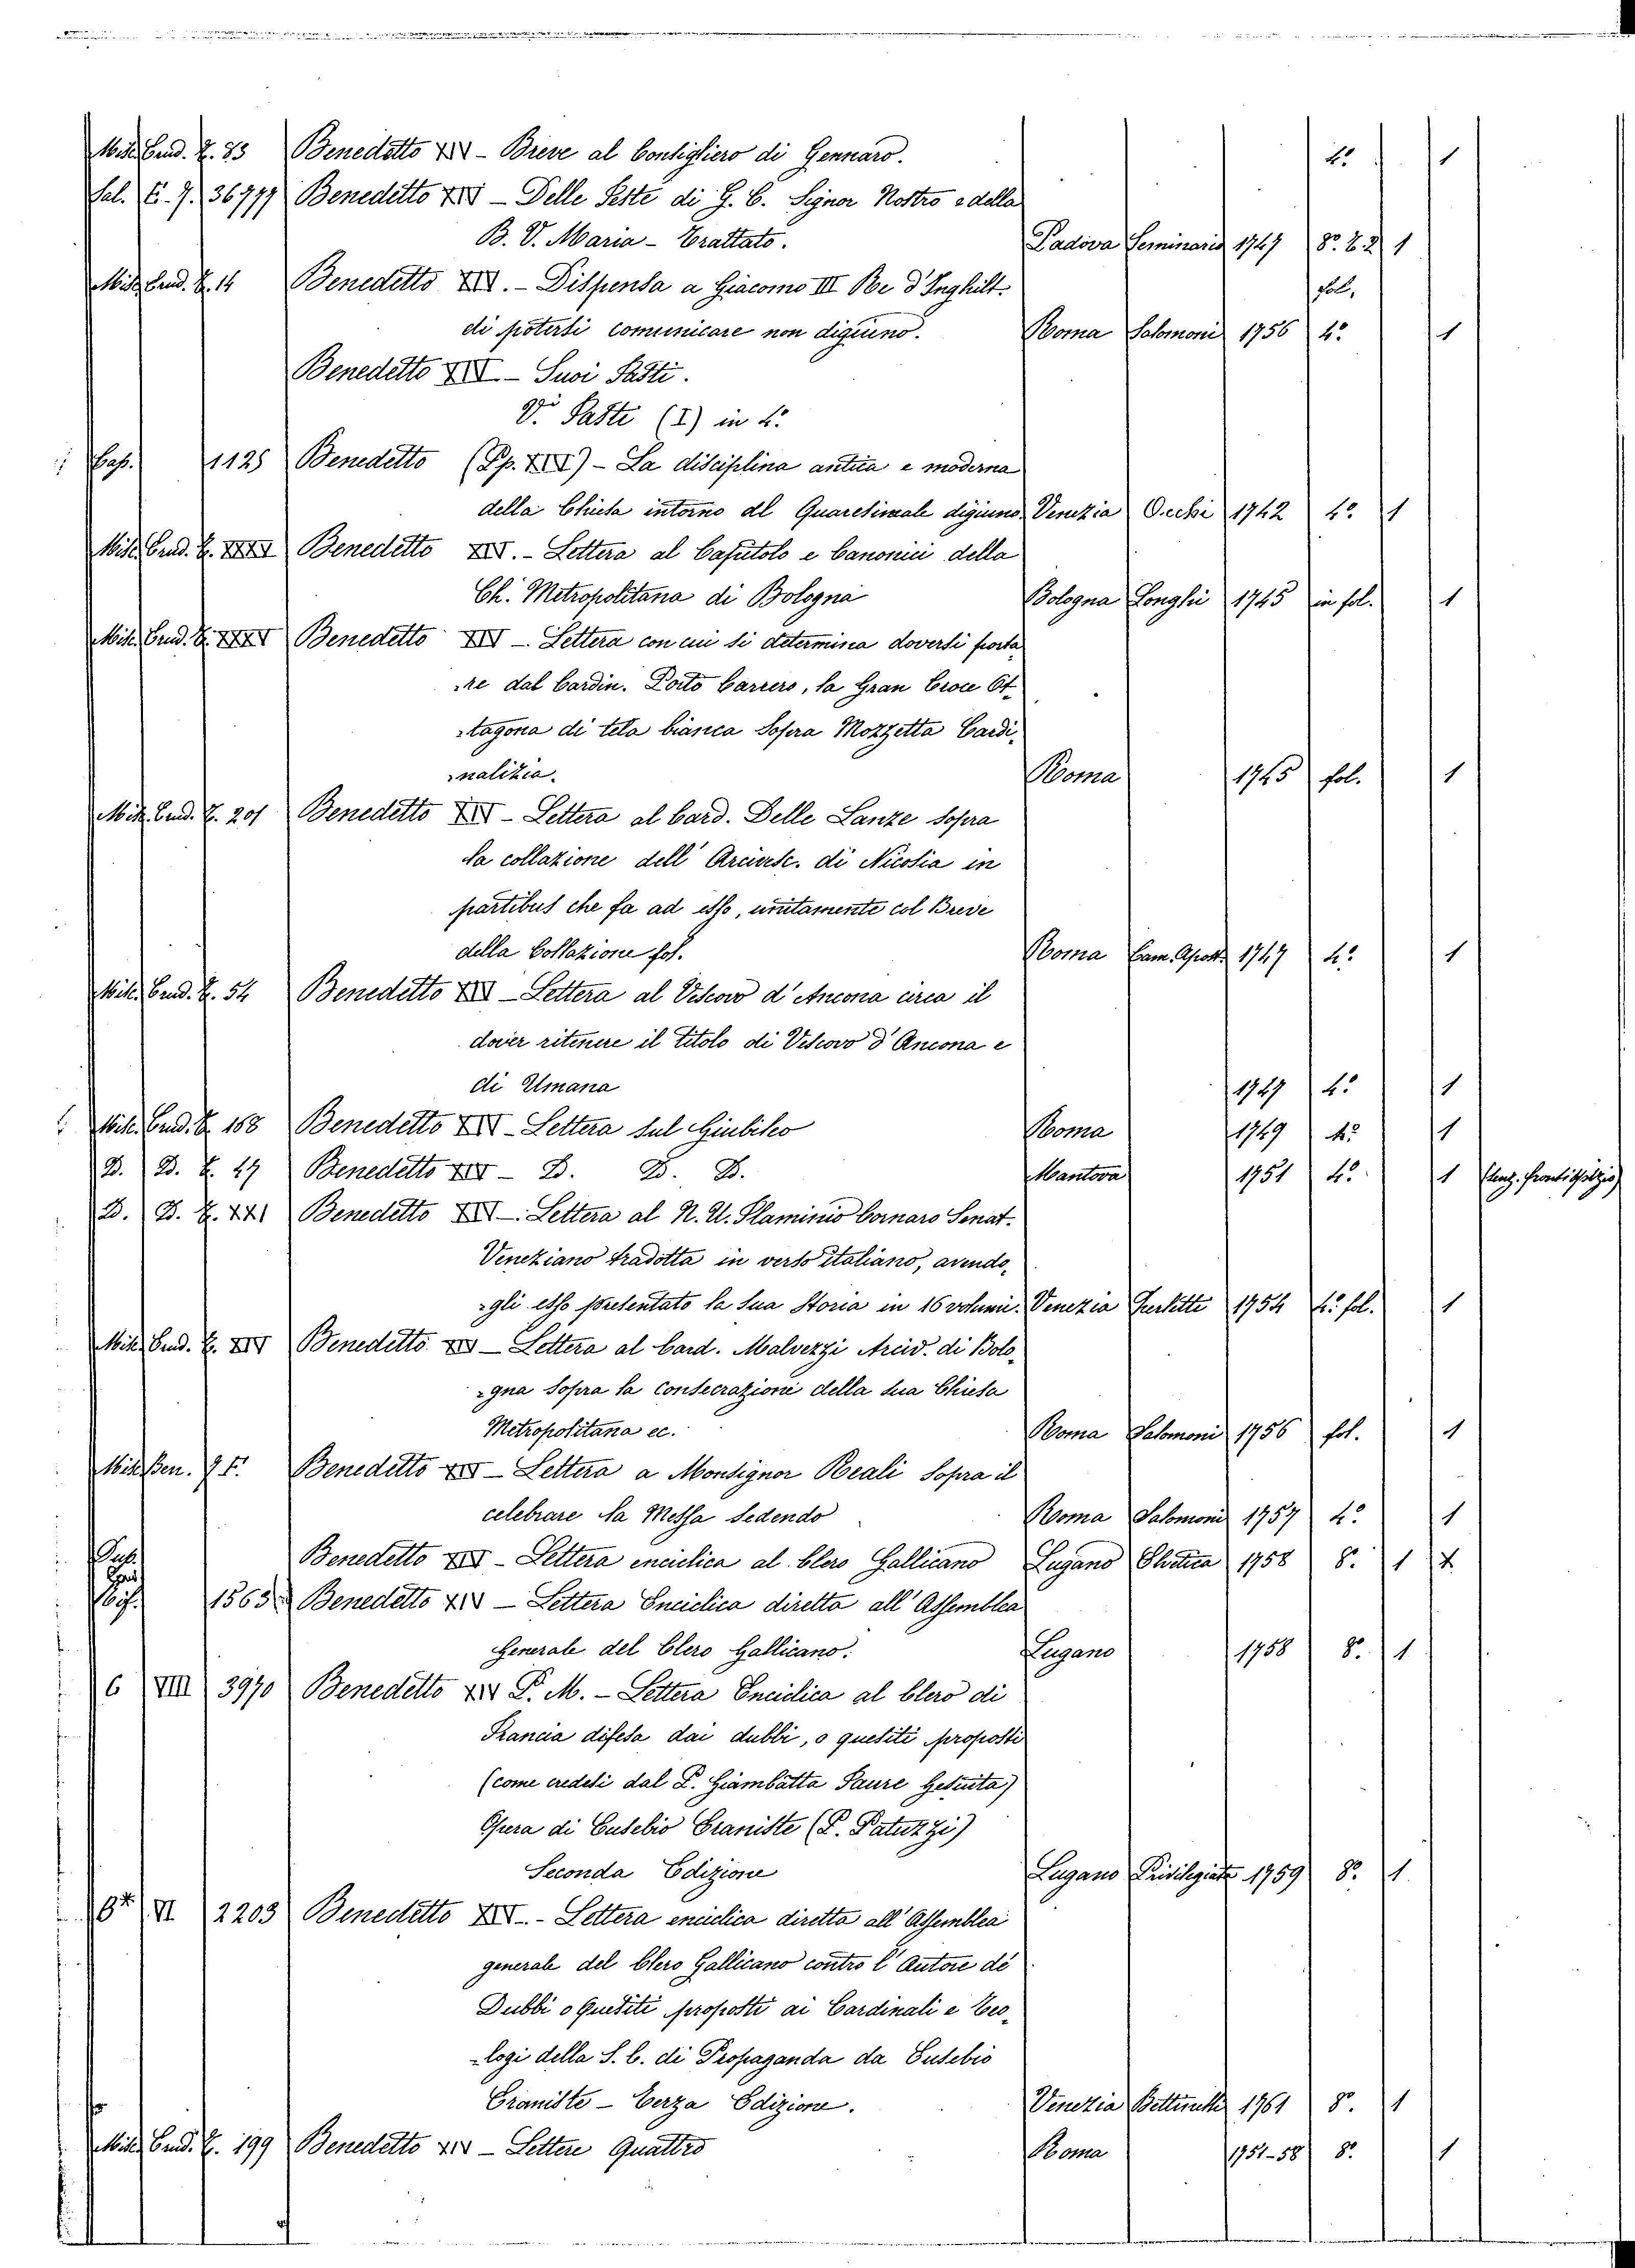 Misc. Erud. T. 83 Benedetto XIV - Breve al Consigliero di Gennaro. 4º 1
Sal. E. 7. 36777 Benedetto XIV - Delle Feste di G. C. Signor Nostro e della
B. V. Maria - Trattato. Padova Seminario 1747 8º T. 2 1
Misc. Erud. T. 14 Benedetto XIV. - Dispensa a Giacomo III Re d'Inghilt. fol.
di potersi comunicare non digiuno. Roma Salomoni 1756 4º 1
Benedetto XIV - Suoi Fasti.
Vi Fasti (I) in 4º
Cap. 1125 Benedetto (Pp. XIV) - La disciplina antica e moderna
della Chiesa intorno al Quaresimale digiuno. Venezia Occhi 1742 4º 1
Misc. Erud. T. Benedetto XIV. - Lettera al Capitolo e Canonici della
Ch. Metropolitana di Bologna Bologna Longhi 1745 in fol. 1
Misc. Erud. T. Benedetto XIV - Lettera con cui si determina doversi porta
re dal Cardin. Porto Carrero, la Gran Croce Ot
tagona di tela bianca sopra Mozzetta Cardi
nalizia. Roma 1745 fol. 1
Misc. Erud. T. 201 Benedetto XIV - Lettera al Card. Delle Lanze sopra
la collazione dell' Arcivesc. di Nicosia in
partibus che fa ad esso, unitamente col Breve
della Collazione fol. Roma Cam. Apost. 1747 4º 1
Misc. Erud. T. 54 Benedetto XIV - Lettera al Vescovo d'Ancona circa il
dover ritenere il titolo di Vescovo d'Ancona e
di Umana 1747 4º 1
Misc. Erud. T. 158 Benedetto XIV - Lettera sul Giubileo Roma 1749 4º 1
D. D. T. 47 Benedetto XIV - D. D. D. Mantova 1751 4º 1
D. D. T. Benedetto XIV - Lettera al N. U. Flaminio Cornaro Senat.
Veneziano tradotta in verso italiano, avendo
gli esso presentato la sua Storia in 16 volumi. Venezia 1754 4º fol. 1
Misc. Erud. T. XIV Benedetto XIV - Lettera al Card. Malvezzi Arciv. di Bolo
gna sopra la consecrazione della sua Chiesa
Metropolitana ec. Roma Salomoni 1756 fol. 1
Misc. Ben. 7 F. Benedetto XIV - Lettera a Monsignor Reali sopra il
celebrare la Messa sedendo Roma Salomoni 1757 4º 1
Benedetto XIV - Lettera enciclica al Clero Gallicano Lugano Elvetica 1758 8º 1
1565 Benedetto XIV - Lettera Enciclica diretta all'Assemblea
Generale del Clero Gallicano. Lugano 1758 8º 1
6 VIII 3970 Benedetto XIV P. M. - Lettera Enciclica al Clero di
Francia difesa dai dubbi, o quesiti proposti
(come credesi dal P. Giambatta Faure Gesuita)
Opera di Eusebio Eraniste (P. Patuzzi)
Seconda Edizione Lugano Privilegiata 1759 8º 1
6* VI 2203 Benedetto XIV. - Lettera enciclica diretta all'Assemblea
generale del Clero Gallicano contro l'Autore de
Dubbi o Quesiti proposti ai Cardinali e Teo
-logi della S. C. di Propaganda da Eusebio
Eraniste - Terza Edizione. Venezia Bettinelli 1761 8º 1
Misc. Erud. T. 199 Benedetto XIV - Lettere Quattro Roma 1751-58 8º 1